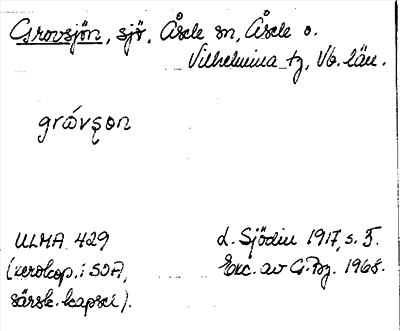 Grovsjön, sjö, Åsele sn, Åsele o.
Vilhelmina tg, Vb. län.
grǻvʂon
ULMA 429
(xerokop. i SOA,
särsk. kapsel).
d. Sjödin 1917, s. 5.
Exc. av G.Pg. 1968.